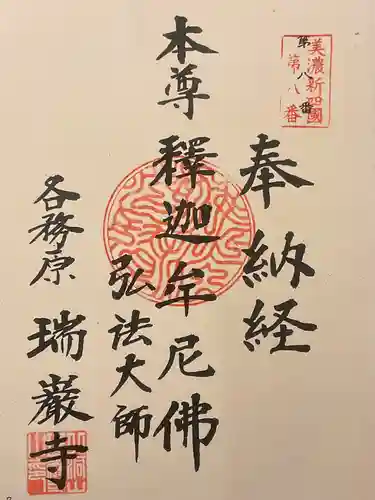 美濃新四國
第八番
第八番
奉納経
本尊 釋迦牟尼佛
弘法大師
各務原
瑞巖寺